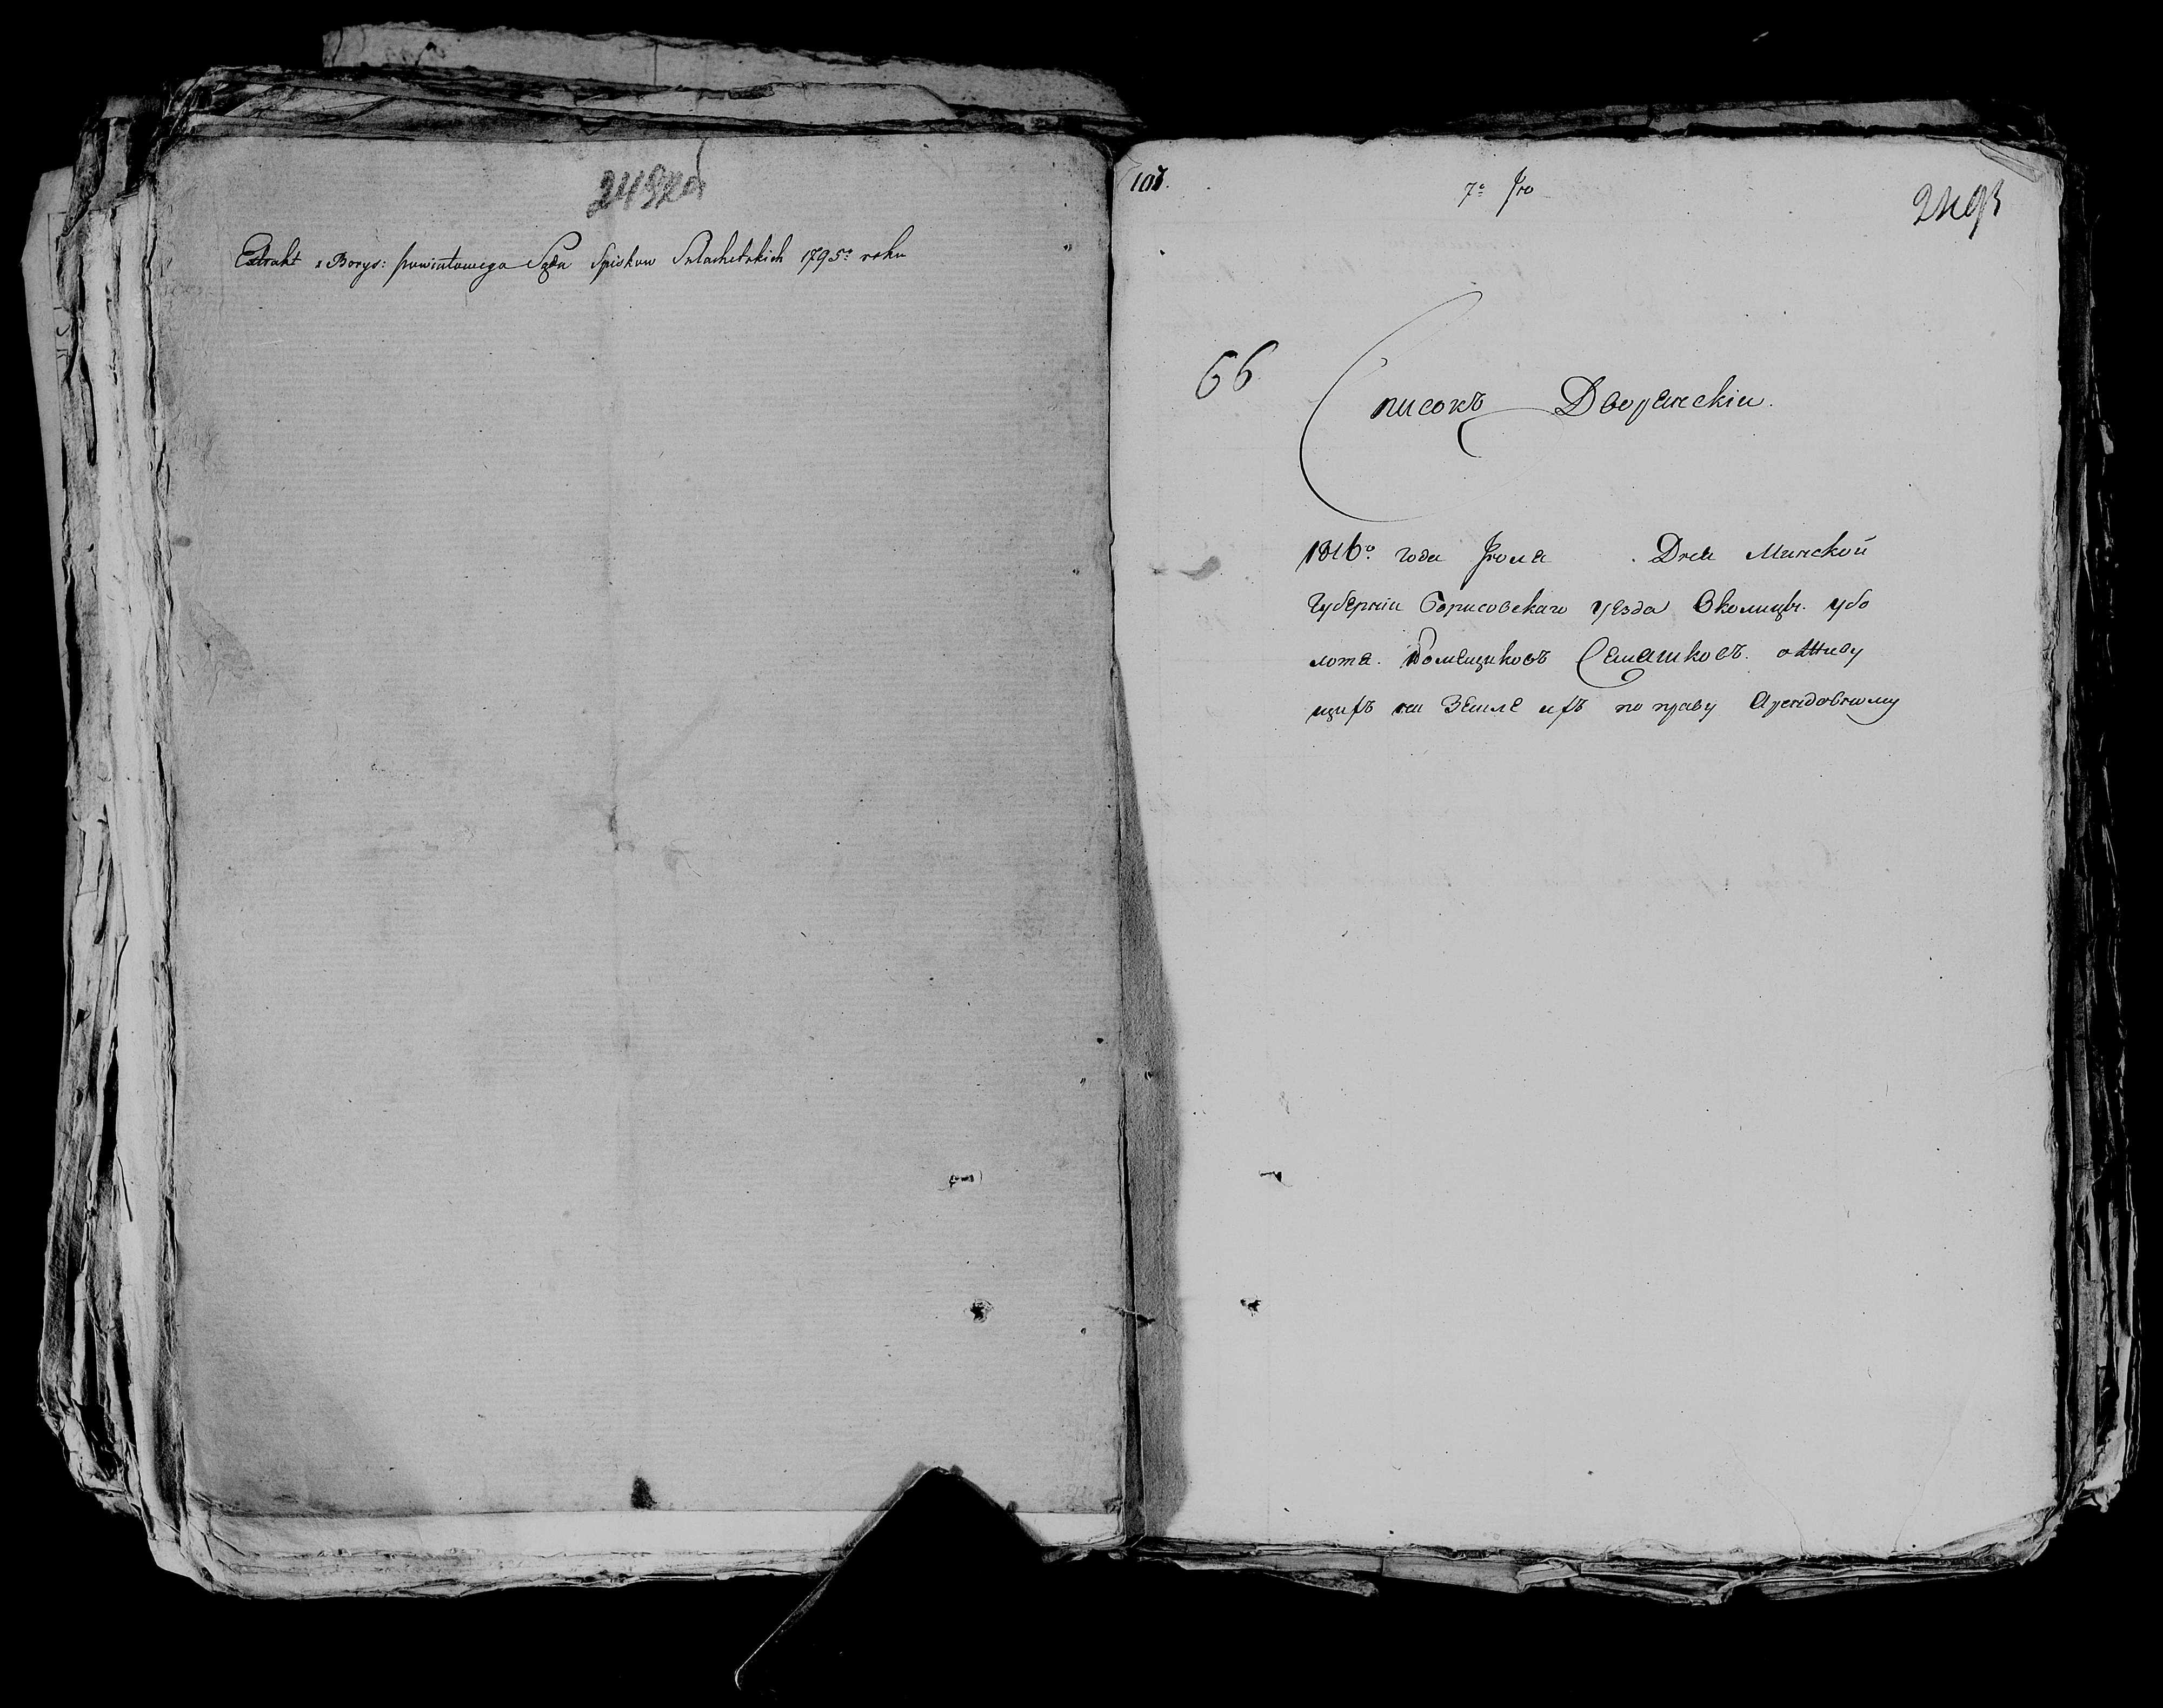 Extrakt z Borys: powiatowego Sądu Spiskow Szlacheckich 1795º roku
107.
7º Јго
66
Списокъ Дворянскіи.
1816º года Іюля . Дня Минской
Губерніи Борисовскаго уезда Околицы. убо
лоте. Помещиковъ Семашковъ. о живу
щихъ на Земле ихъ по праву Арендовному